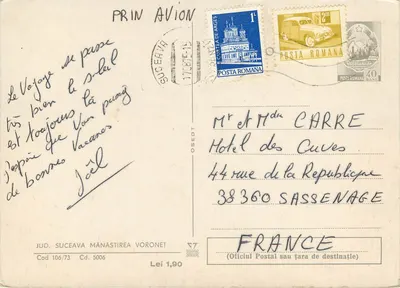 PRIN AVION
SUCEAVA
1L
POSTA ROMANA
POSTA ROMANA
40
Le Voyage se passe
très bien le soleil
est toujours là
J'espère que vous passez
de bonnes Vacances
Joël
Mr et Mdm CARRE
Hotel des Cuves
44 rue de la Republique
38360 SASSENAGE
FRANCE
(Oficiul Postal sau țara de destinație)
JUD. SUCEAVA MĂNĂSTIREA VORONEȚ
Cod 106/73 Cd. 5006
Lei 1,90